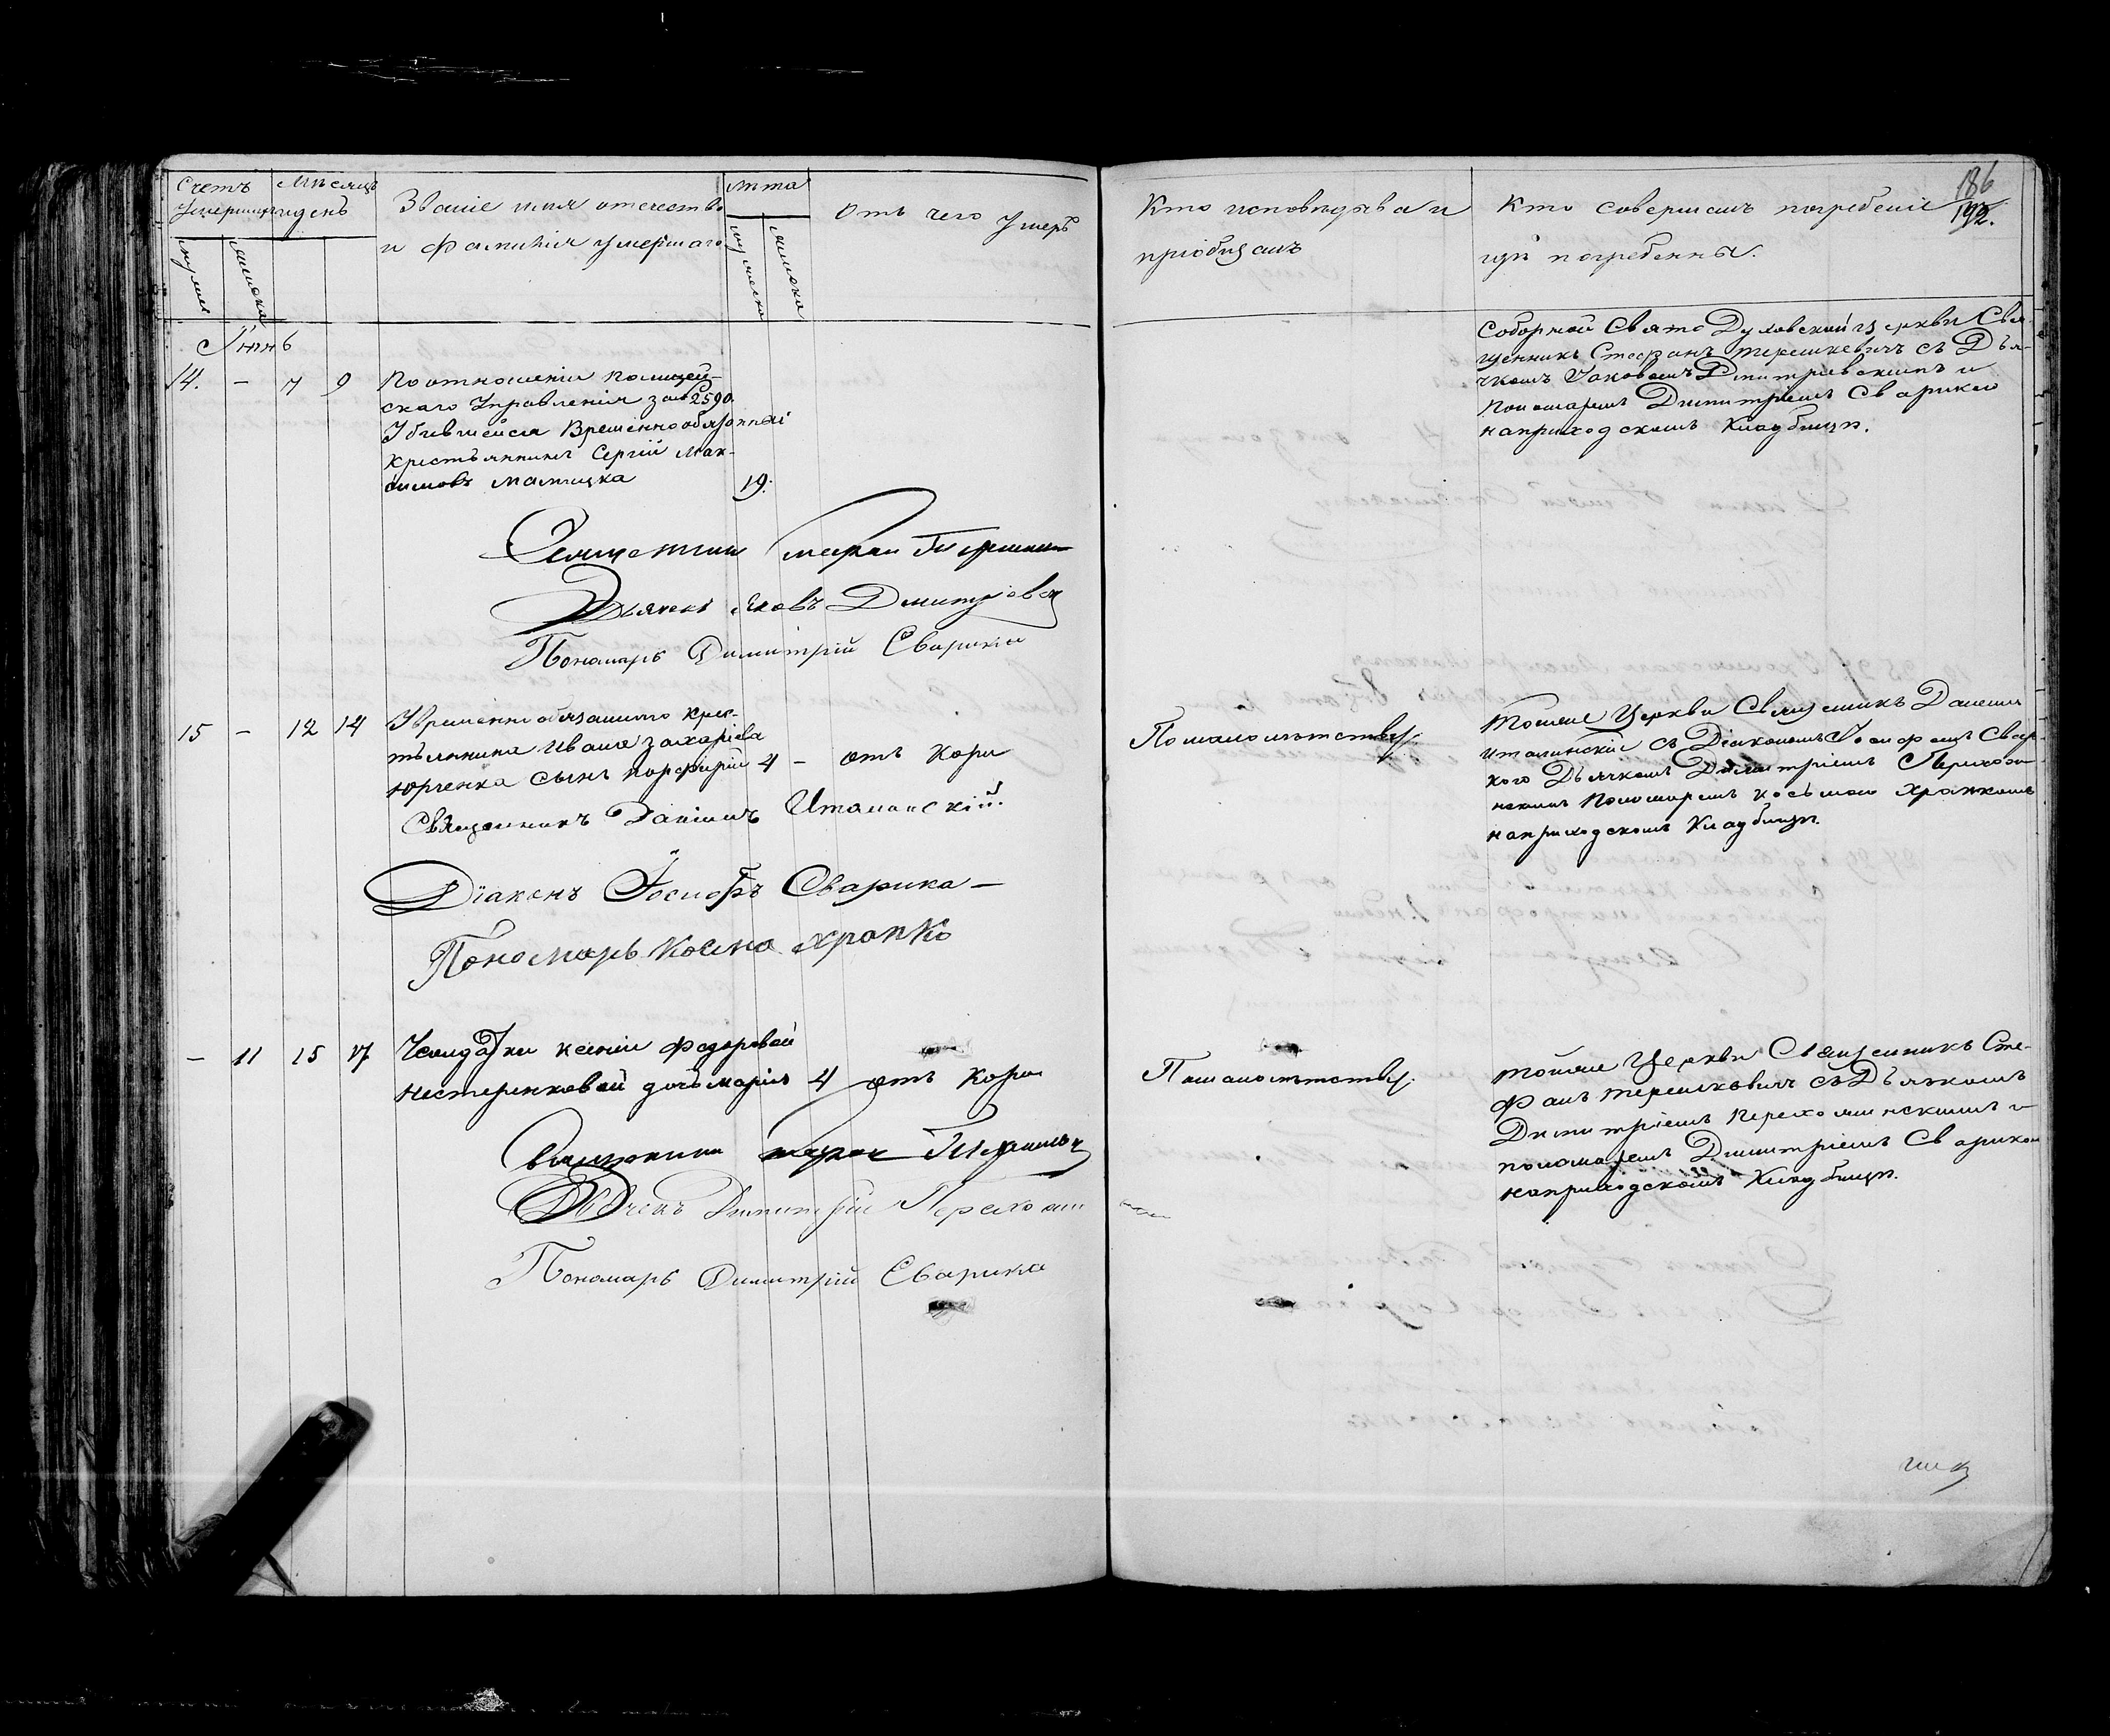 Счетъ умершихъ
Мѣсяцъ и день
Званіе имя отечество
и фамилія умершаго
лѣта
мужеска
женска
Отъ чего умеръ
Кто исповѣдывалъ и
пріобщалъ
Кто совершалъ погребеніе
и гдѣ погребены.
186
Іюнь
14. – 7 9
По отношенію полицей-
скаго Управленія за № 2590.
Убившейся Временнообязанный
крестьянинъ Сергій Мак-
симовъ
19.
Соборной Свято Духовской церкви Свя-
щенникъ Стефанъ Терешкевичъ съ Дья-
чкомъ Іаковомъ Дмитріевскимъ и
Пономаремъ Димитріемъ Сварикою
на приходскомъ Кладбищѣ.
Священникъ Стефан
Дьячекъ Яковъ Дмитріевск
Пономарь Димитрій Сварика
15 – 12 14
У Временно обязаннаго крес-
тьянина Ивана Захаріева
Юрченка сынъ Порфирій 4 – отъ Кори
По малолѣтству.
Тойже Церкви Священникъ Даніилъ
Италинскій съ Діакономъ Іосифомъ Свар-
кого Дьячкомъ Димитріемъ
Пономаремъ Косьмою Храпкомъ
на приходскомъ Кладбищѣ.
Священникъ Даніилъ Италинскій.
Діаконъ Іосифъ Сварика –
Пономарь Косма Храпко
– 11 15 17
У солдатки Ксеніи Федоровой
Нестеренковой дочь Марія 4 отъ Кори
По малолѣтству.
Тойже Церкви Священникъ Сте-
фанъ Терешкевичъ съ Дьячкомъ
Димитріемъ и
пономаремъ Димитріемъ Сварикою
на приходскомъ Кладбищѣ.
Священникъ
Дьячекъ Димитрій
Пономарь Димитрій Сварика